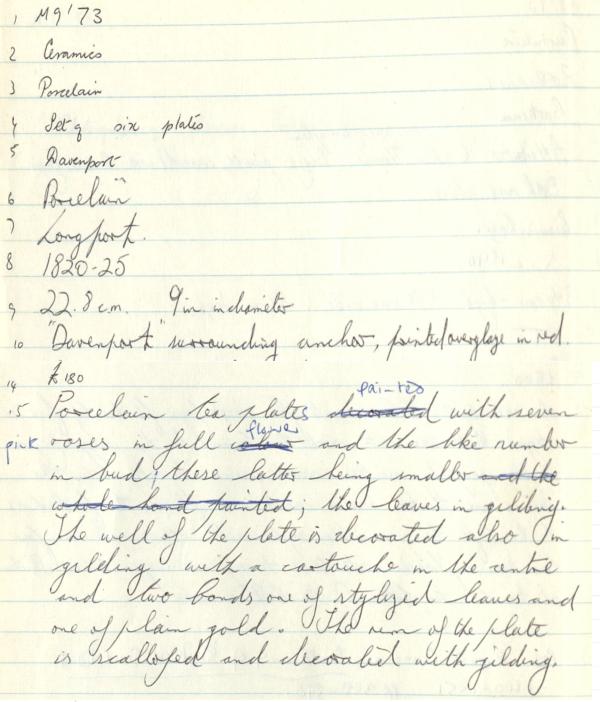 1 M9'73
2 Ceramics
3 Porcelain
4 Set of six plates
5 Davenport
6 Porcelain
7 Longport.
8 1820-25
9 22.8 c.m. 9 in. in diameter
10 "Davenport" surrounding anchor, printed overglaze in red.
14 £180
15 Porcelain tea plates decorated painted with seven
pink roses in full colour flower and the like number
in bud; these latter being smaller and the
whole hand painted; the leaves in gilding.
The well of the plate is decorated also in
gilding with a cartouche in the centre
and two bands one of stylized leaves and
one of plain gold. The rim of the plate
is scalloped and decorated with gilding.